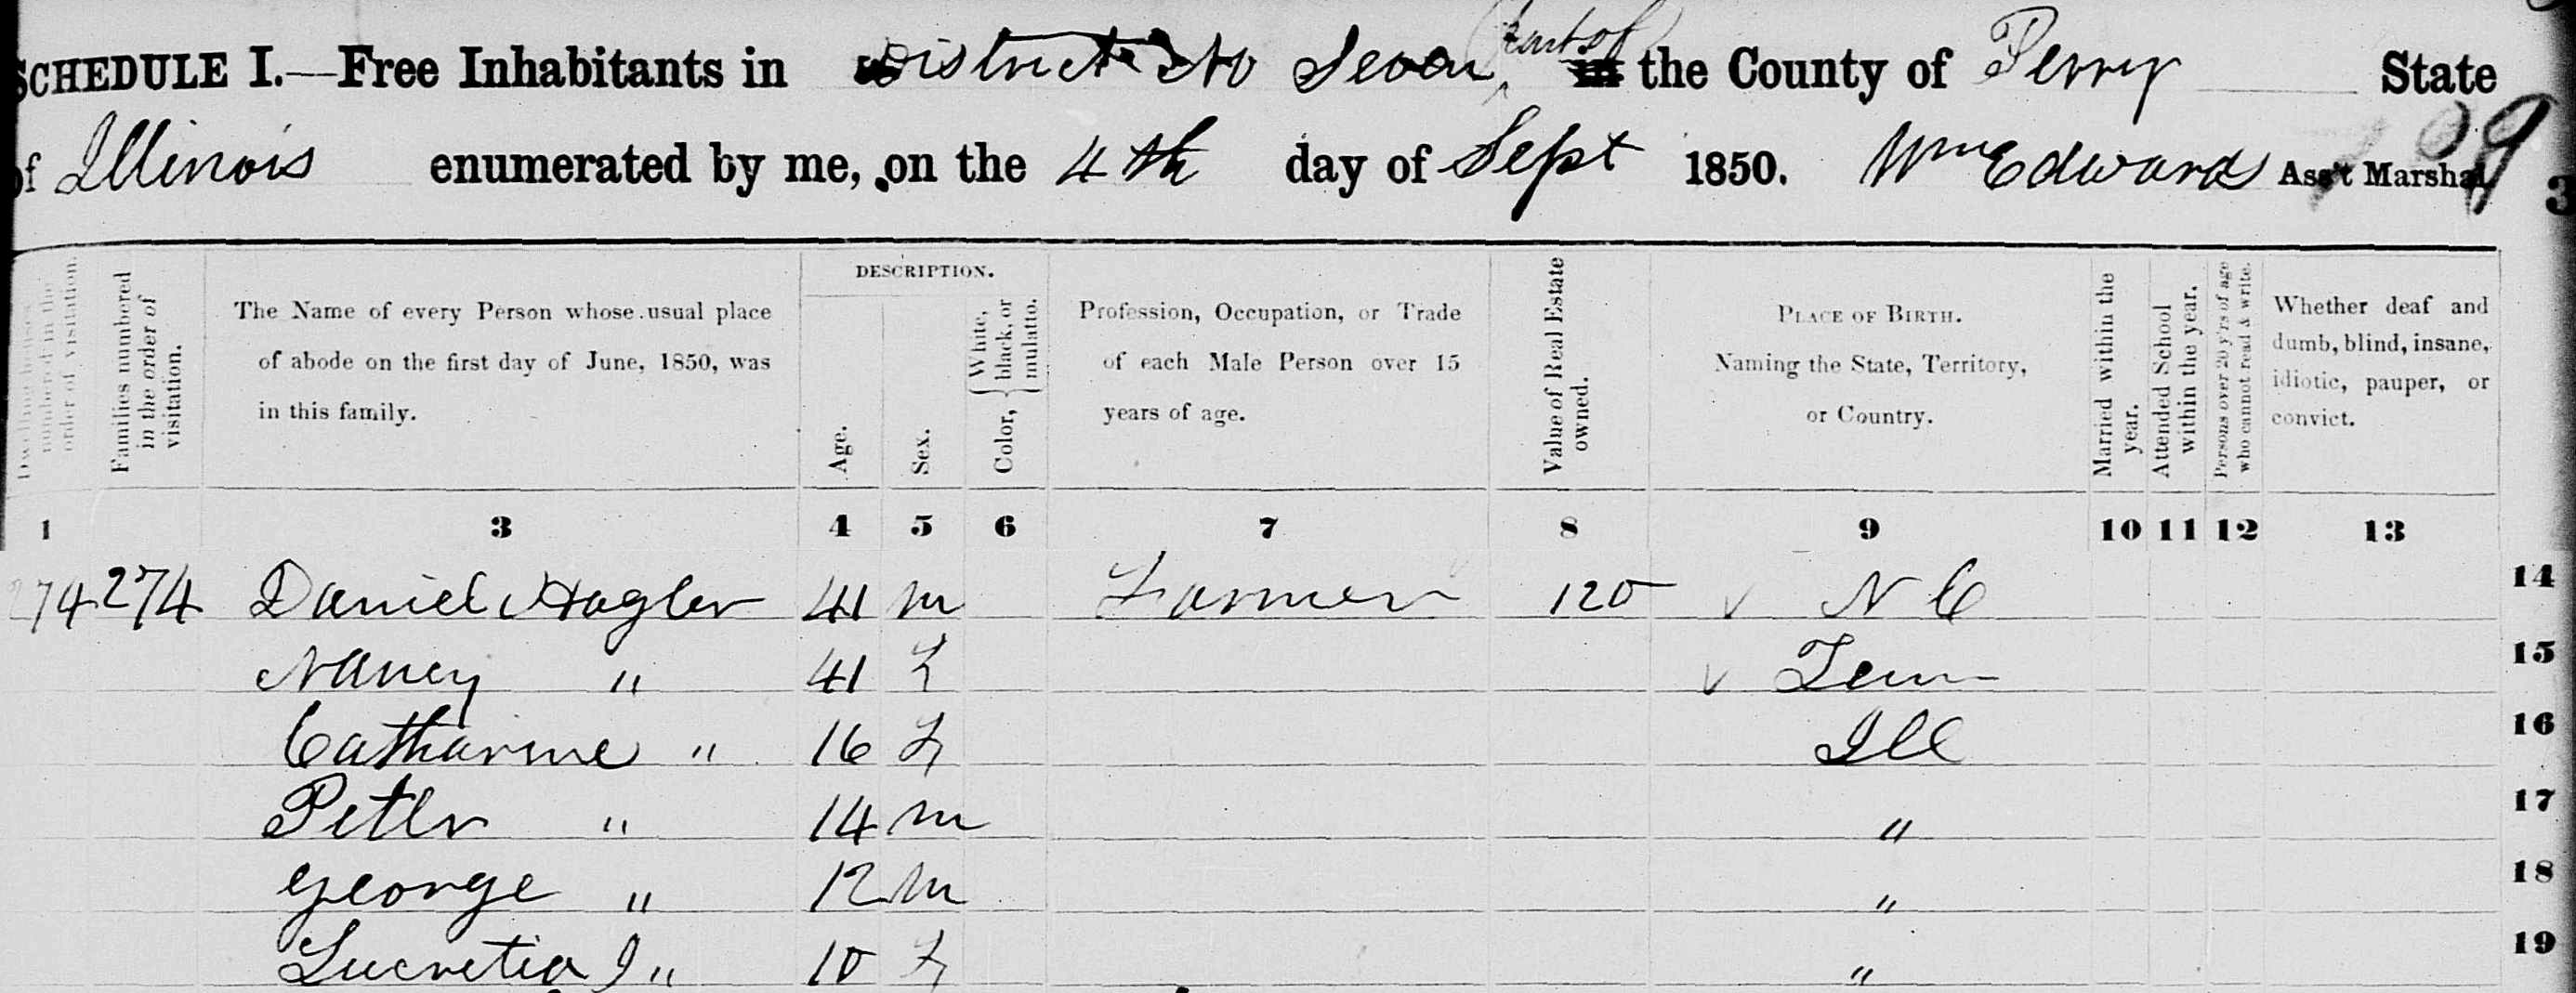 SCHEDULE I.—Free Inhabitants in District No Seven part of the County of Perry State
of Illinois enumerated by me, on the 4th day of Sept 1850. Wm Edwards Ass't Marshal.
Dwelling houses numbered in the order of visitation.
Families numbered in the order of visitation.
The Name of every Person whose usual place of abode on the first day of June, 1850, was in this family.
DESCRIPTION.
Age.
Sex.
Color, { White, black, or mulatto.
Profession, Occupation, or Trade of each Male Person over 15 years of age.
Value of Real Estate owned.
PLACE OF BIRTH.
Naming the State, Territory, or Country.
Married within the year.
Attended School within the year.
Persons over 20 y'rs of age who cannot read & write.
Whether deaf and dumb, blind, insane, idiotic, pauper, or convict.
1 3 4 5 6 7 8 9 10 11 12 13
274 274 Daniel Hagler 41 m Farmer 120 v N C 14
Nancy " 41 f v Tenn 15
Catharine " 16 f Ill 16
Peter " 14 m " 17
George " 12 m " 18
Lucretia J " 10 f " 19